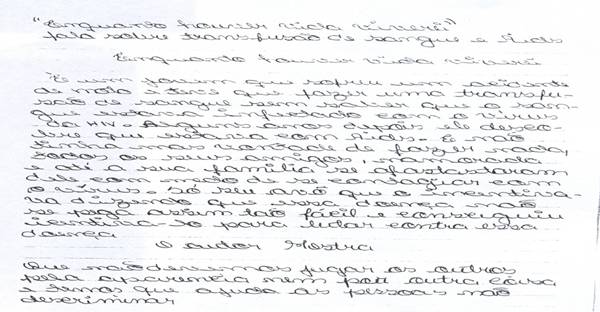 "Enquanto houver vida viverei"
fala sobre transfusão de sangue e Aids
Enquanto houver vida viverei
É um jovem que sofreu um acidente
de moto e teve que fazer uma transfu-
são de sangue sem saber que o san-
gue estava infectado com o vírus
do HIV. Alguns anos depois ele desco-
bre que estava com Aids. E não
tinha mais vontade de fazer nada,
todos os seus amigos, namorada
e até a sua família se afastaram
dele com medo de se contagiar com
o vírus. Só seu avô que o insentiva-
va dizendo que essa doença não
se pega assim tão fácil e conseguiu
insentiva-lo para lutar contra essa
doença
O autor Mostra
Que não devemos jugar os outros
pela aparencia nem por outra coisa
e temos que ajuda as pessoas não
descriminar